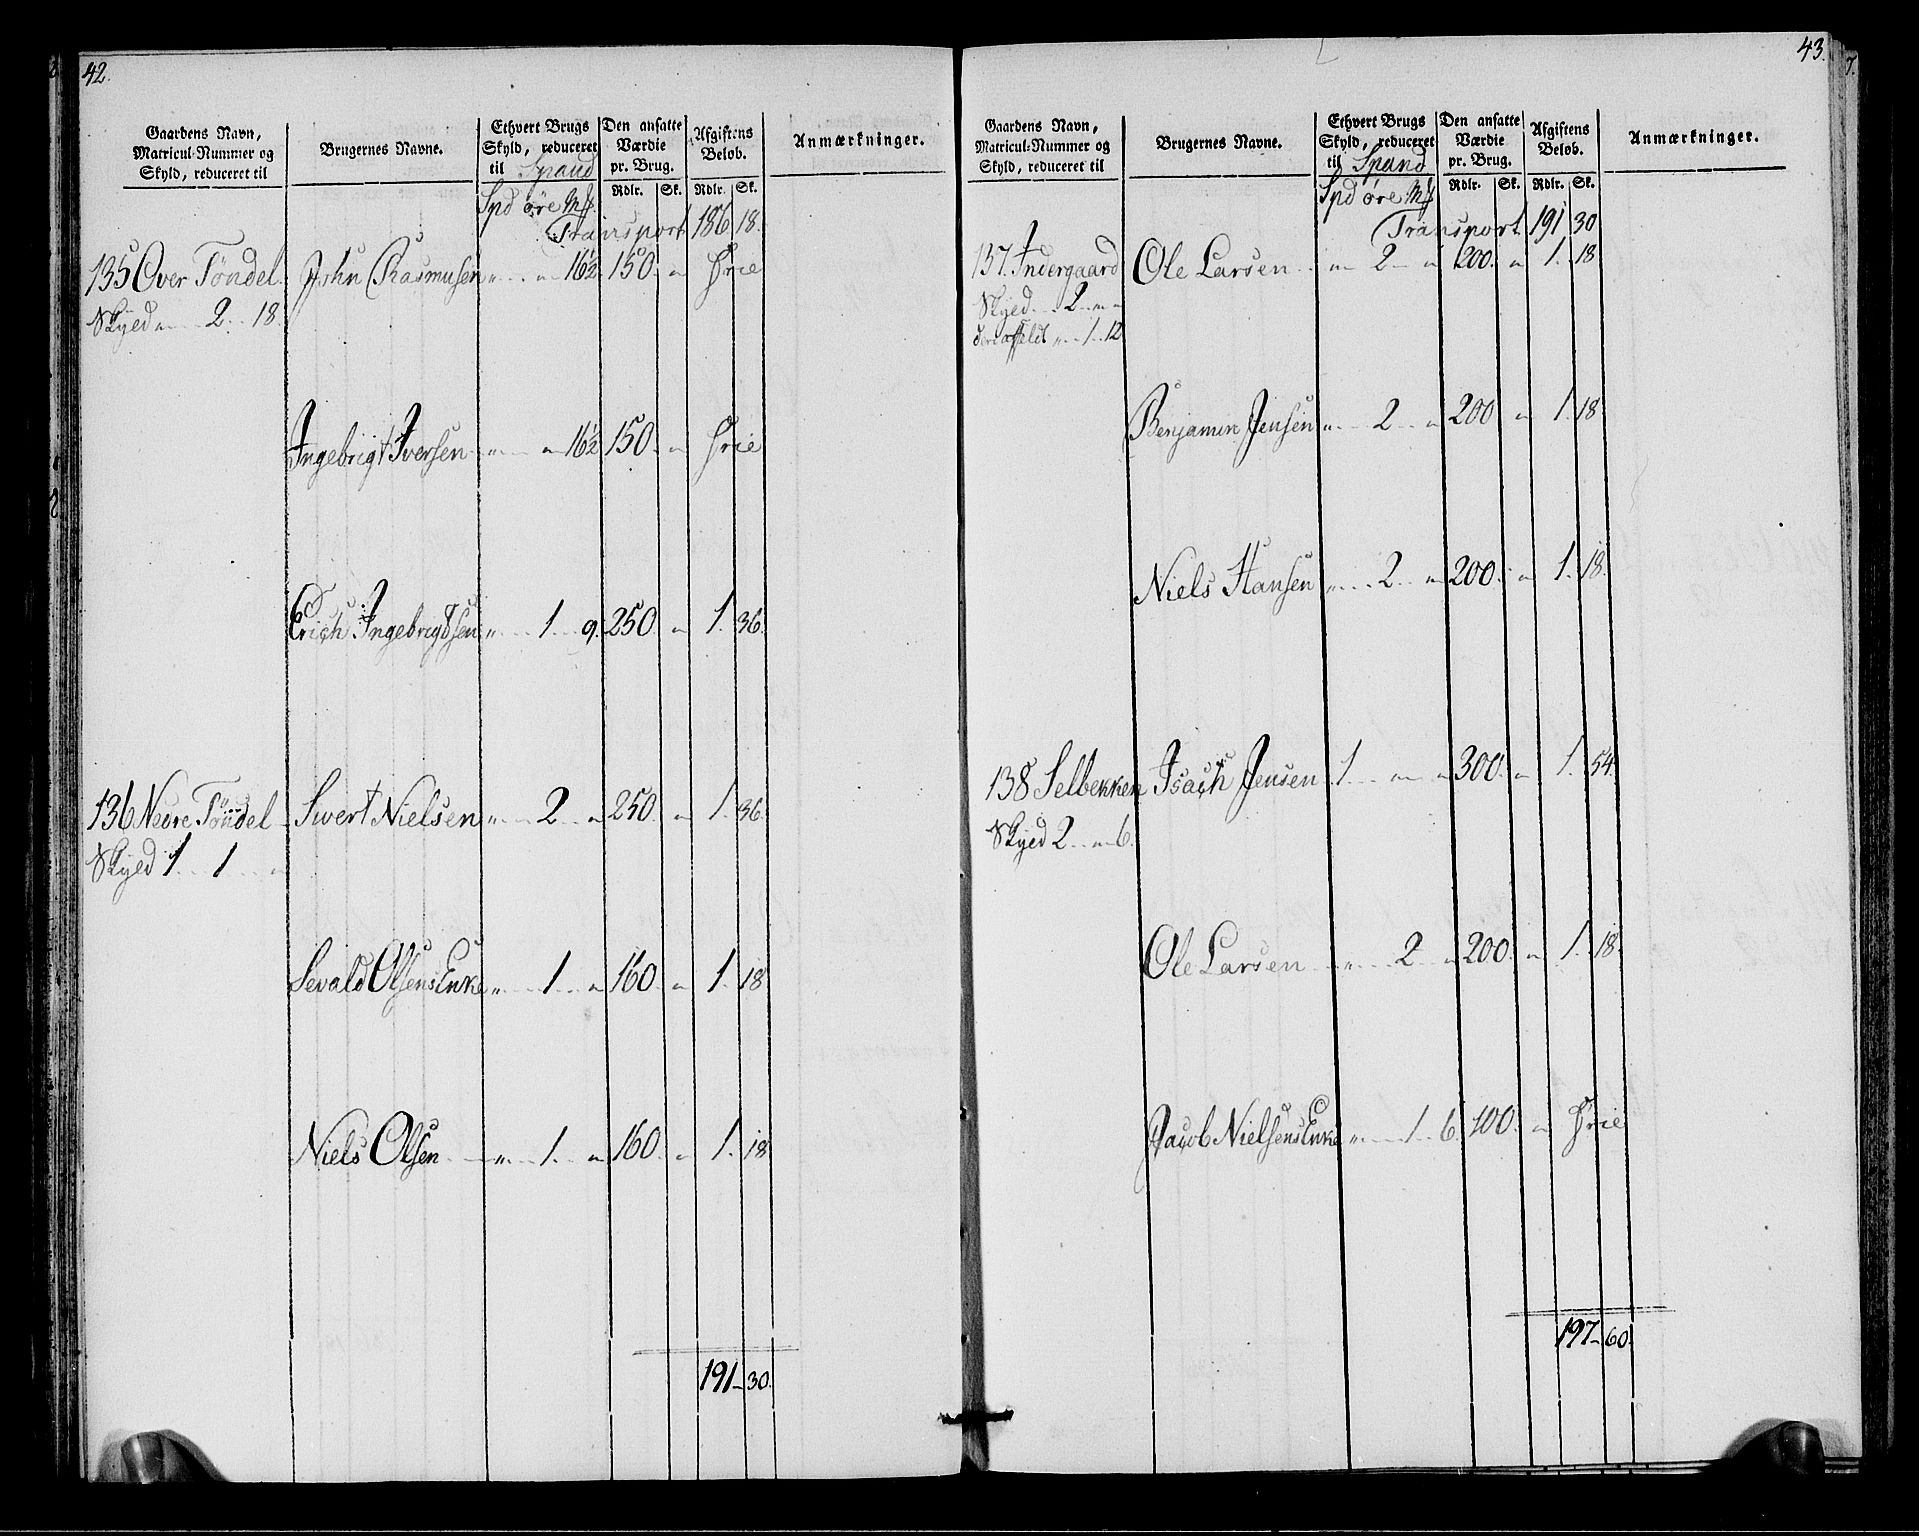 42.
Gaardens Navn, Matricul-Nummer og Skyld, reduceret til
Brugernes Navne.
Ethvert Brugs Skyld, reduceret til Spand
Den ansatte Værdie pr. Brug.
Afgiftens Beløb.
Anmærkninger.
Rdlr. Sk. Rdlr. Sk.
Spd øre
Transport 186 18.
135 Over Töndel John Rasmusen 16½ 150 Frie
Skyld 2 18.
Ingebrigt Iversen 16½ 150 Frie
Erich Ingebrigtsen 1 9. 250 1. 36.
136 Nedre Töndel Sivert Nielsen 2 250 1. 36.
Skyld 1 1
Sevald Olsens Enke 1 160 1. 18
Niels Olsen 1 160 1. 18
191 30.
43.
Gaardens Navn, Matricul-Nummer og Skyld, reduceret til
Brugernes Navne.
Ethvert Brugs Skyld, reduceret til Spand
Den ansatte Værdie pr. Brug.
Afgiftens Beløb.
Anmærkninger.
Rdlr. Sk. Rdlr. Sk.
Spd øre
Transport 191 30
137. Indergaard Ole Larsen 2 200. 1. 18
Skyld 2
1. 12
Benjamin Jensen 2 200 1. 18
Niels Hansen 2 200. 1. 18.
138 Selbekken Isach Jensen 1 300. 1. 54.
Skyld 2 6.
Ole Larsen 2 200. 1. 18.
Jacob Nielsens Enke 1 6. 100. Frie
197 60.